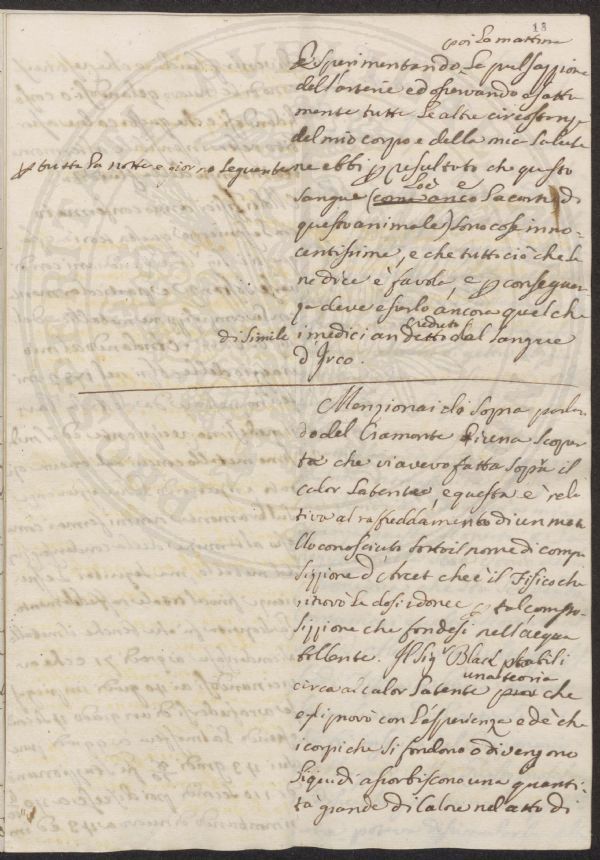 18
poi la mattina
Esperimentando la pulsazzione
dell'arterie ed osservando esatta
mente tutte le altre circostanze
del mio corpo e della mia salute
p tutta la notte e giorno seguente ne ebbi p resultato che questo
Loè e
sangue (come anco la carne di
questo animale) sono cose inno-
centissime, e che tutto ciò che se
ne dice è favola, e p conseguen-
za deve esserlo ancora quel che
creduto
di simile i medici an detto del sangue
d'Irco.
Menzionai di sopra parlan
do del Cramonte Sirena scoper
ta che vi avevo fatta sopra il
calor latente, e questa e' rela
tiva al raffreddamento di un meta
llo conosciuto sotto il nome di compo
sizzione d'Arcet che è il Fisico che
ritrovò la dosi idonee p tal compo-
sizzione che fondesi nell'acqua
bollente. Il Sigr Black stabili
una teoria
circa al calor latente che
egli provò con l'asperienza ed è che
i corpi che si fondono o divengono
liquidi assorbiscono una quanti
tà grande di calore nel atto di